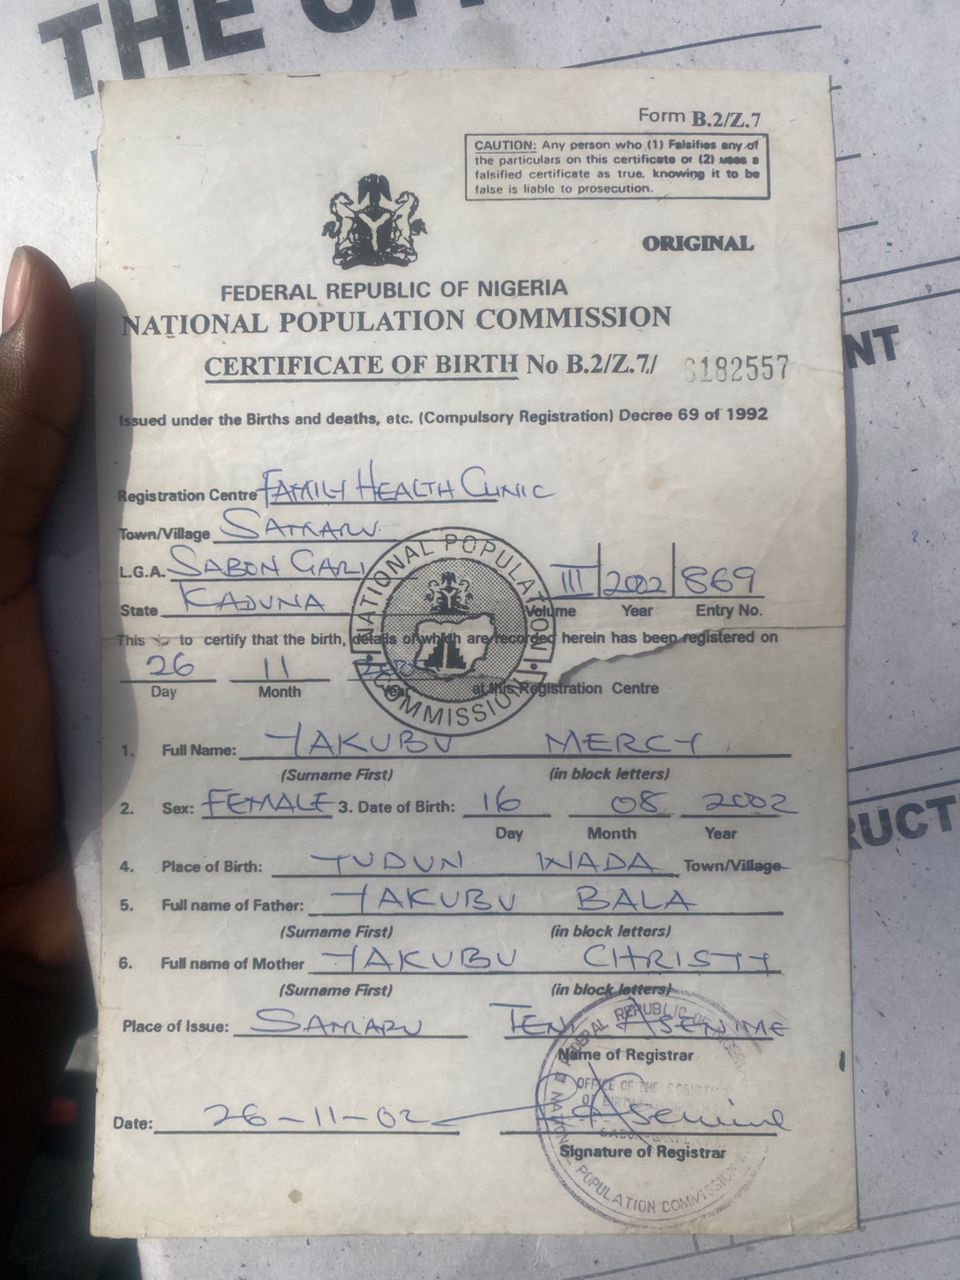 THE OF
Form B.2/Z.7
CAUTION: Any person who (1) Falsifies any of
the particulars on this certificate or (2) uses a
falsified certificate as true, knowing it to be
false is liable to prosecution.
ORIGINAL
FEDERAL REPUBLIC OF NIGERIA
NATIONAL POPULATION COMMISSION
CERTIFICATE OF BIRTH No B.2/Z.7/ 6182557
Issued under the Births and deaths, etc. (Compulsory Registration) Decree 69 of 1992
Registration Centre FAMILY HEALTH CLINIC
Town/Village SAMARU
L.G.A. SABON GARI
State KADUNA
III 2002 869
Volume Year Entry No.
NATIONAL POPULATION COMMISSION
This is to certify that the birth, details of which are recorded herein has been registered on
26 11
Day Month Year at this Registration Centre
1. Full Name: YAKUBU MERCY
(Surname First) (in block letters)
2. Sex: FEMALE 3. Date of Birth: 16 08 2002
Day Month Year
4. Place of Birth: TUDUN WADA Town/Village
5. Full name of Father: YAKUBU BALA
(Surname First) (in block letters)
6. Full name of Mother YAKUBU CHRISTY
(Surname First) (in block letters)
Place of Issue: SAMARU TENI ASENIME
Name of Registrar
Date: 26-11-02 Asenime
Signature of Registrar
FEDERAL REPUBLIC OF NIGERIA
OFFICE OF THE
NATIONAL POPULATION COMMISSION
NT
RUCT